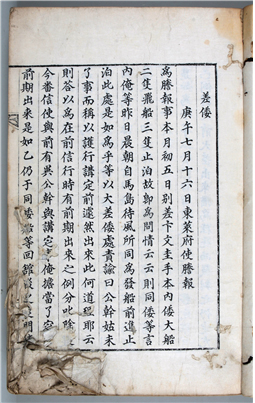 差倭
庚午七月十六日東萊府使謄報
爲謄報事本月初五日別差卞文圭手本內倭大船
二隻飛船三隻止泊故卽爲問情云云則同倭等言
內俺等昨日晨朝自馬島待風所同爲發船前進止
泊此處是如爲乎等以大差倭處責諭曰公幹姑未
了事而稱以護行講定前遽然出來此何道理耶云
則答以爲在前信行時有前期出來之例分叱除
今番信使與前有異公幹與講定 俺擔當了
前期出來是如乙仍于同倭 等回館